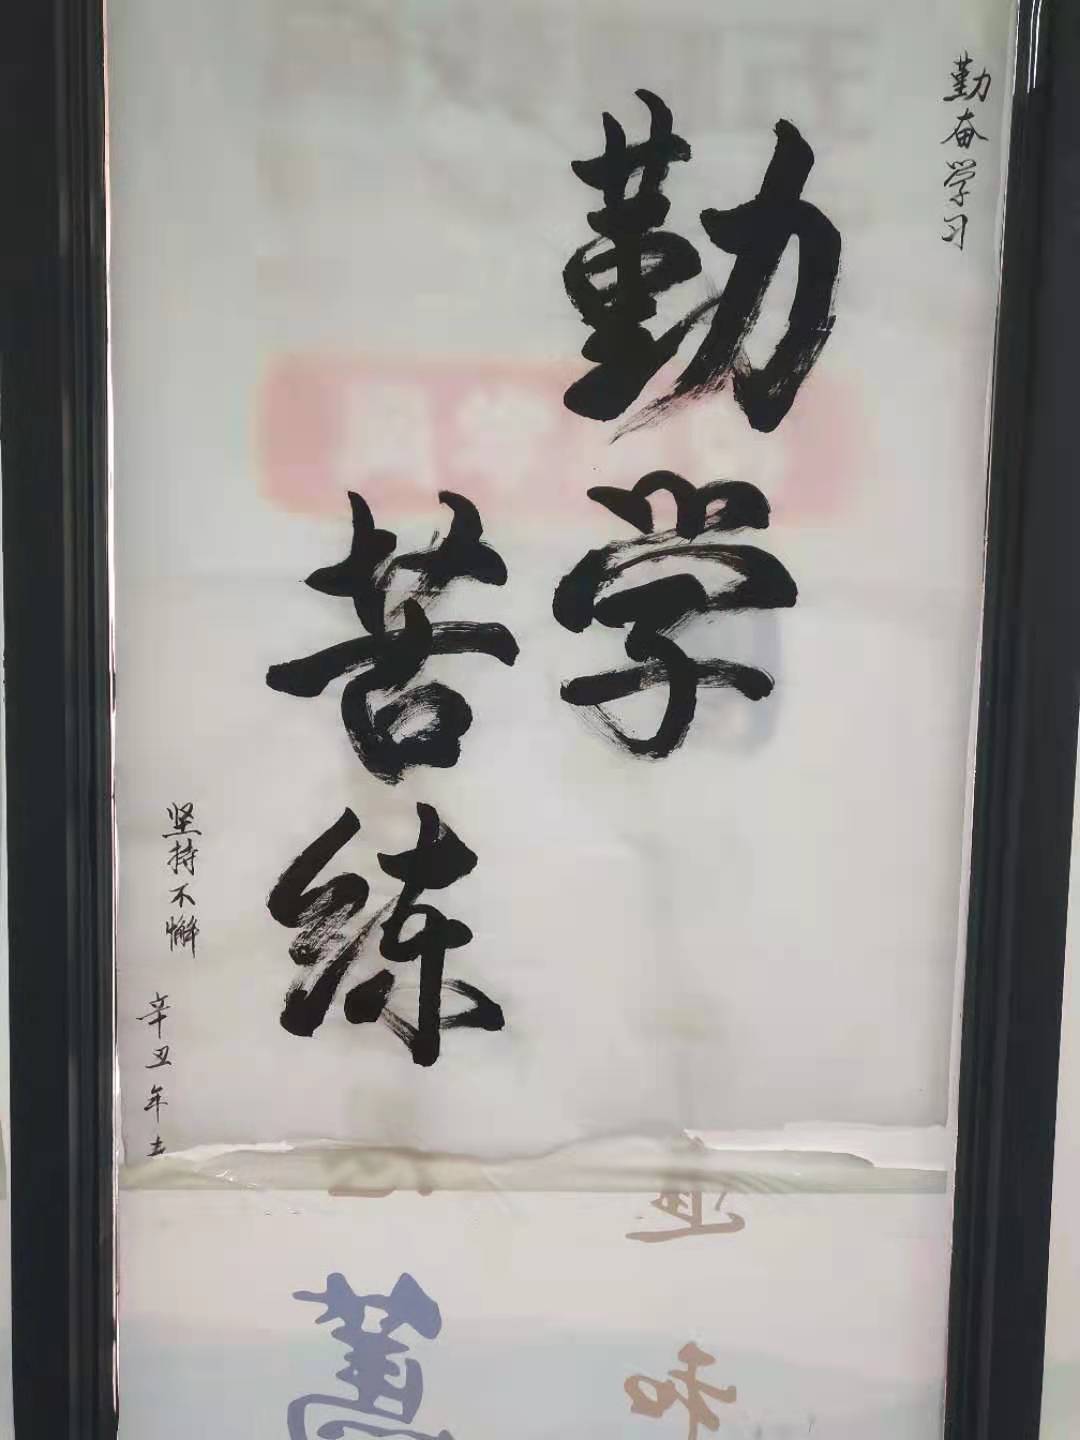 勤奋学习
勤学
苦练
坚持不懈
辛丑年
篤
和